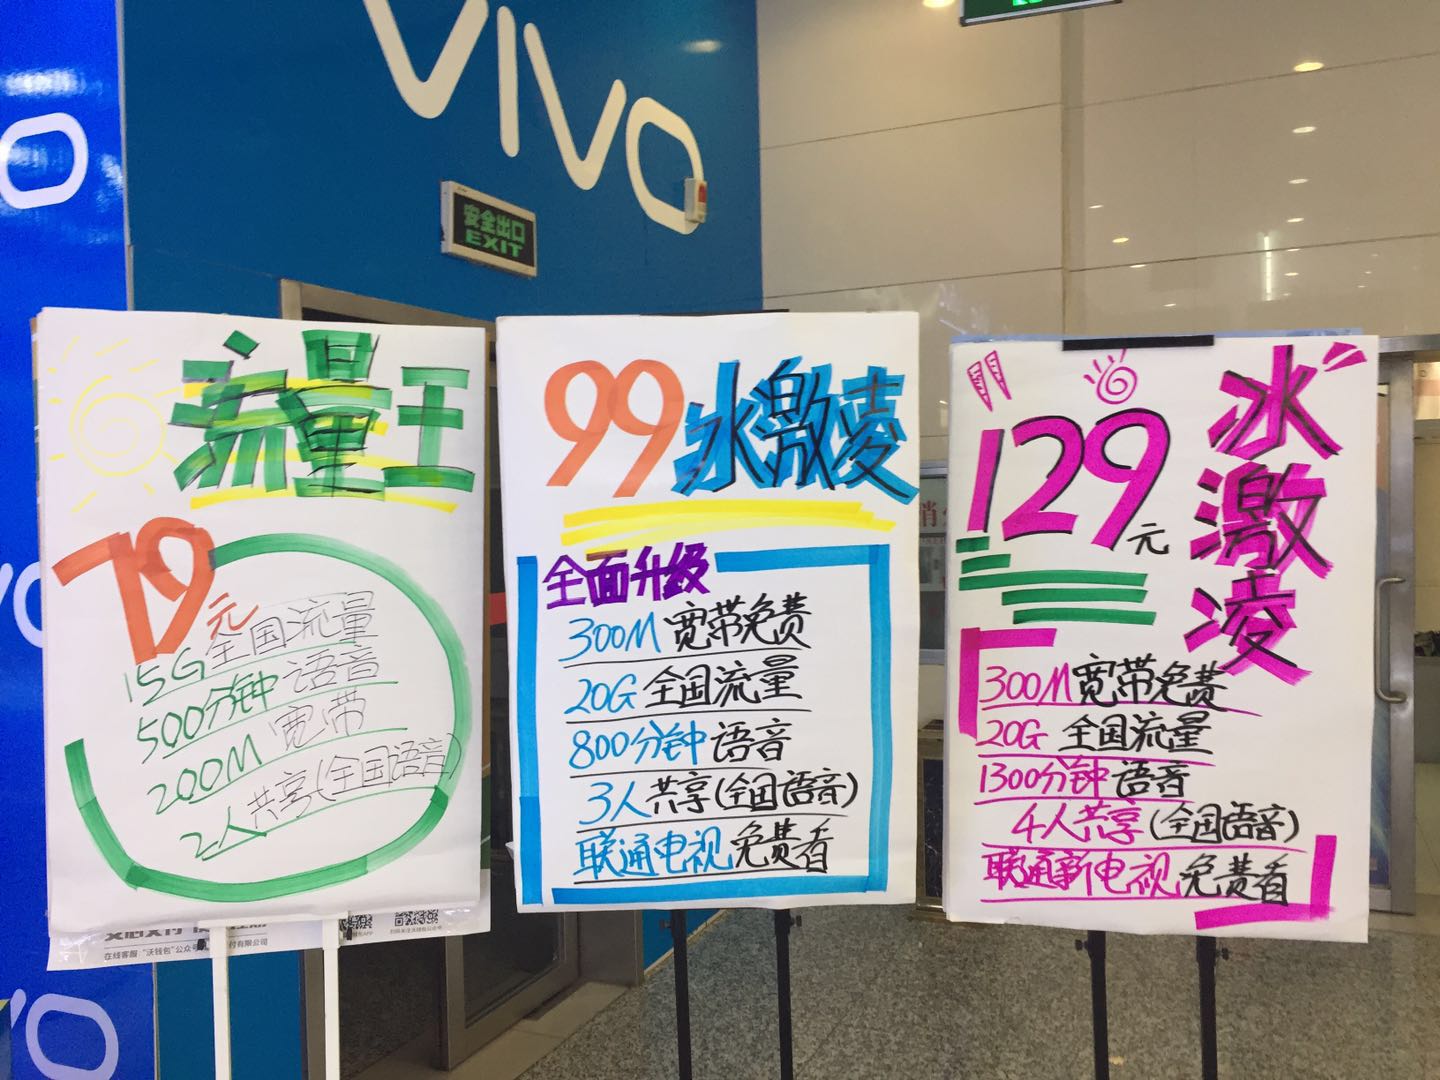 VIVO
安全出口
EXIT
流量王
79元
15G全国流量
500分钟语音
200M宽带
2人共享(全国语音)
在线客服:"沃钱包"公众号
付有限公司
99冰激凌
全面升级
300M宽带免费
20G全国流量
800分钟语音
3人共享(全国语音)
联通电视免费看
129元
冰激凌
300M宽带免费
20G全国流量
1300分钟语音
4人共享(全国语音)
联通新电视免费看